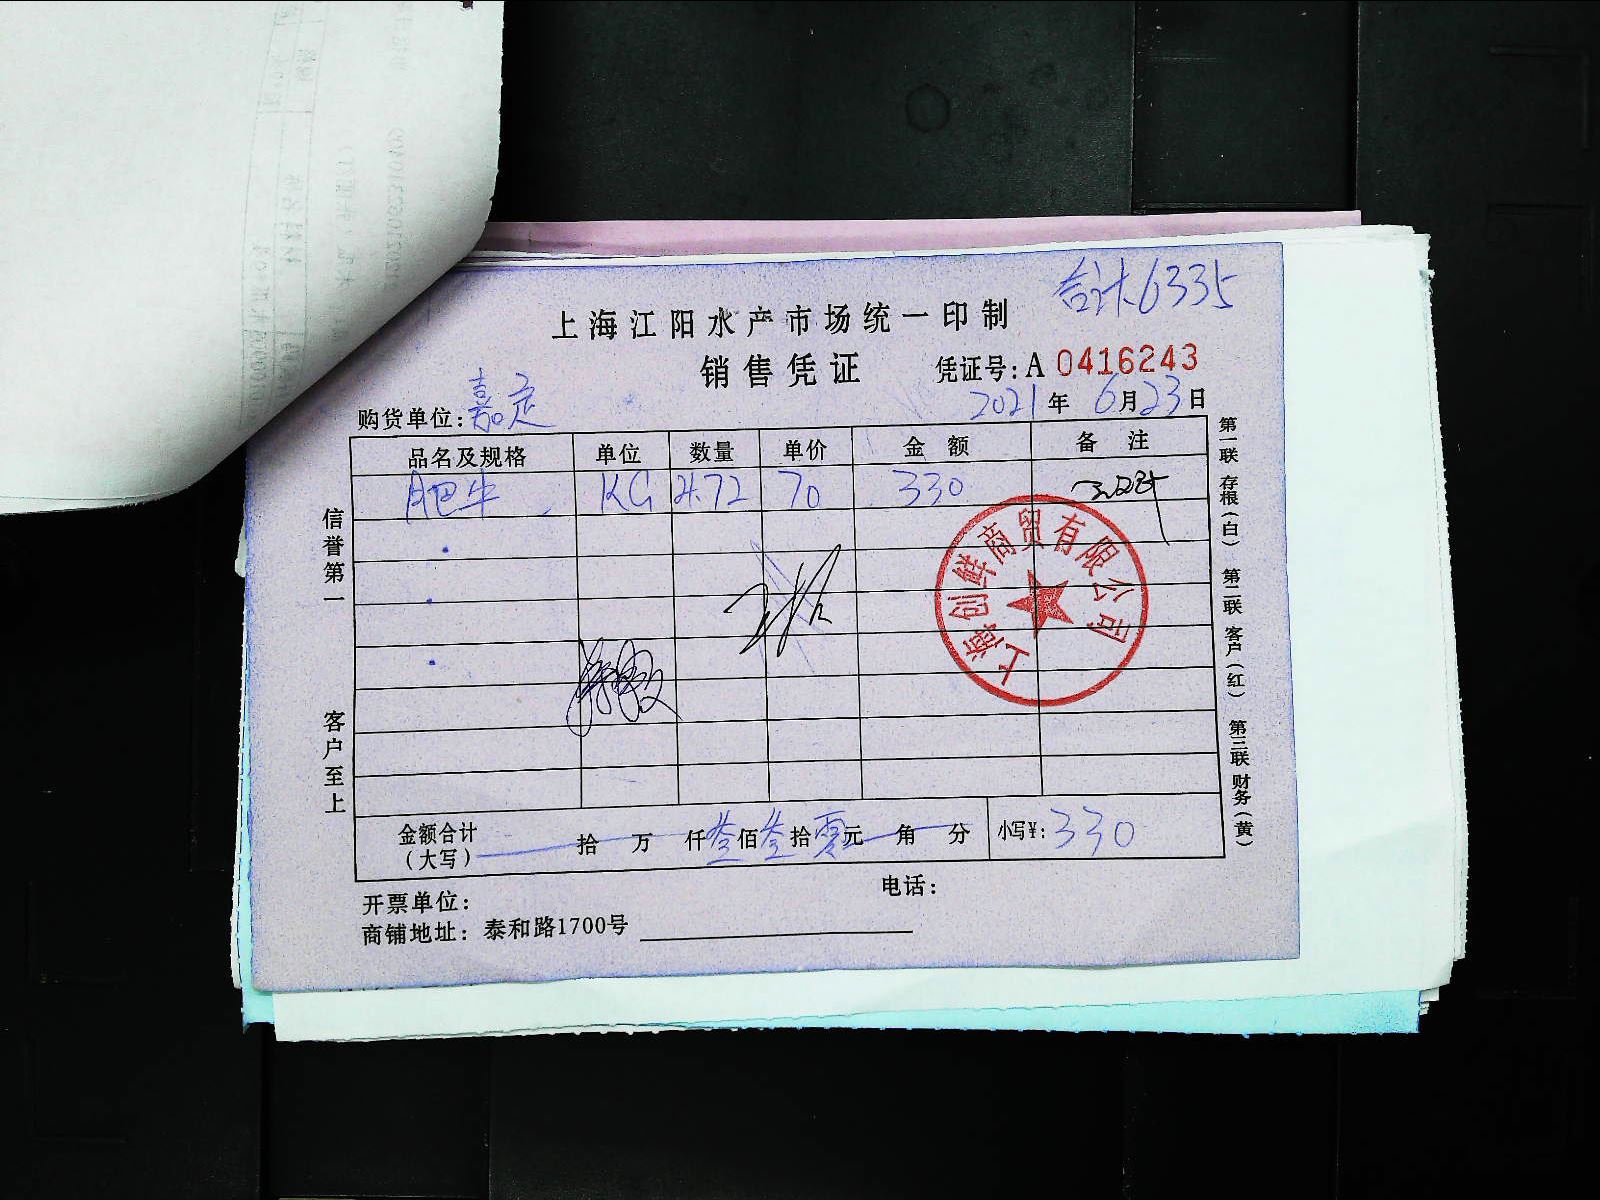 合计6335
上海江阳水产市场统一印制
销售凭证
凭证号:A 0416243
购货单位:嘉定
2021年 6月23日
品名及规格 单位 数量 单价 金额 备注
肥牛 KG 4.72 70 330
信誉第一
客户至上
上海创鲜商贸有限公司
第一联 存根(白) 第二联 客户(红) 第三联 财务(黄)
金额合计(大写) 拾 万 仟 叁佰叁拾零元 角 分 小写¥:330
开票单位: 电话:
商铺地址: 泰和路1700号